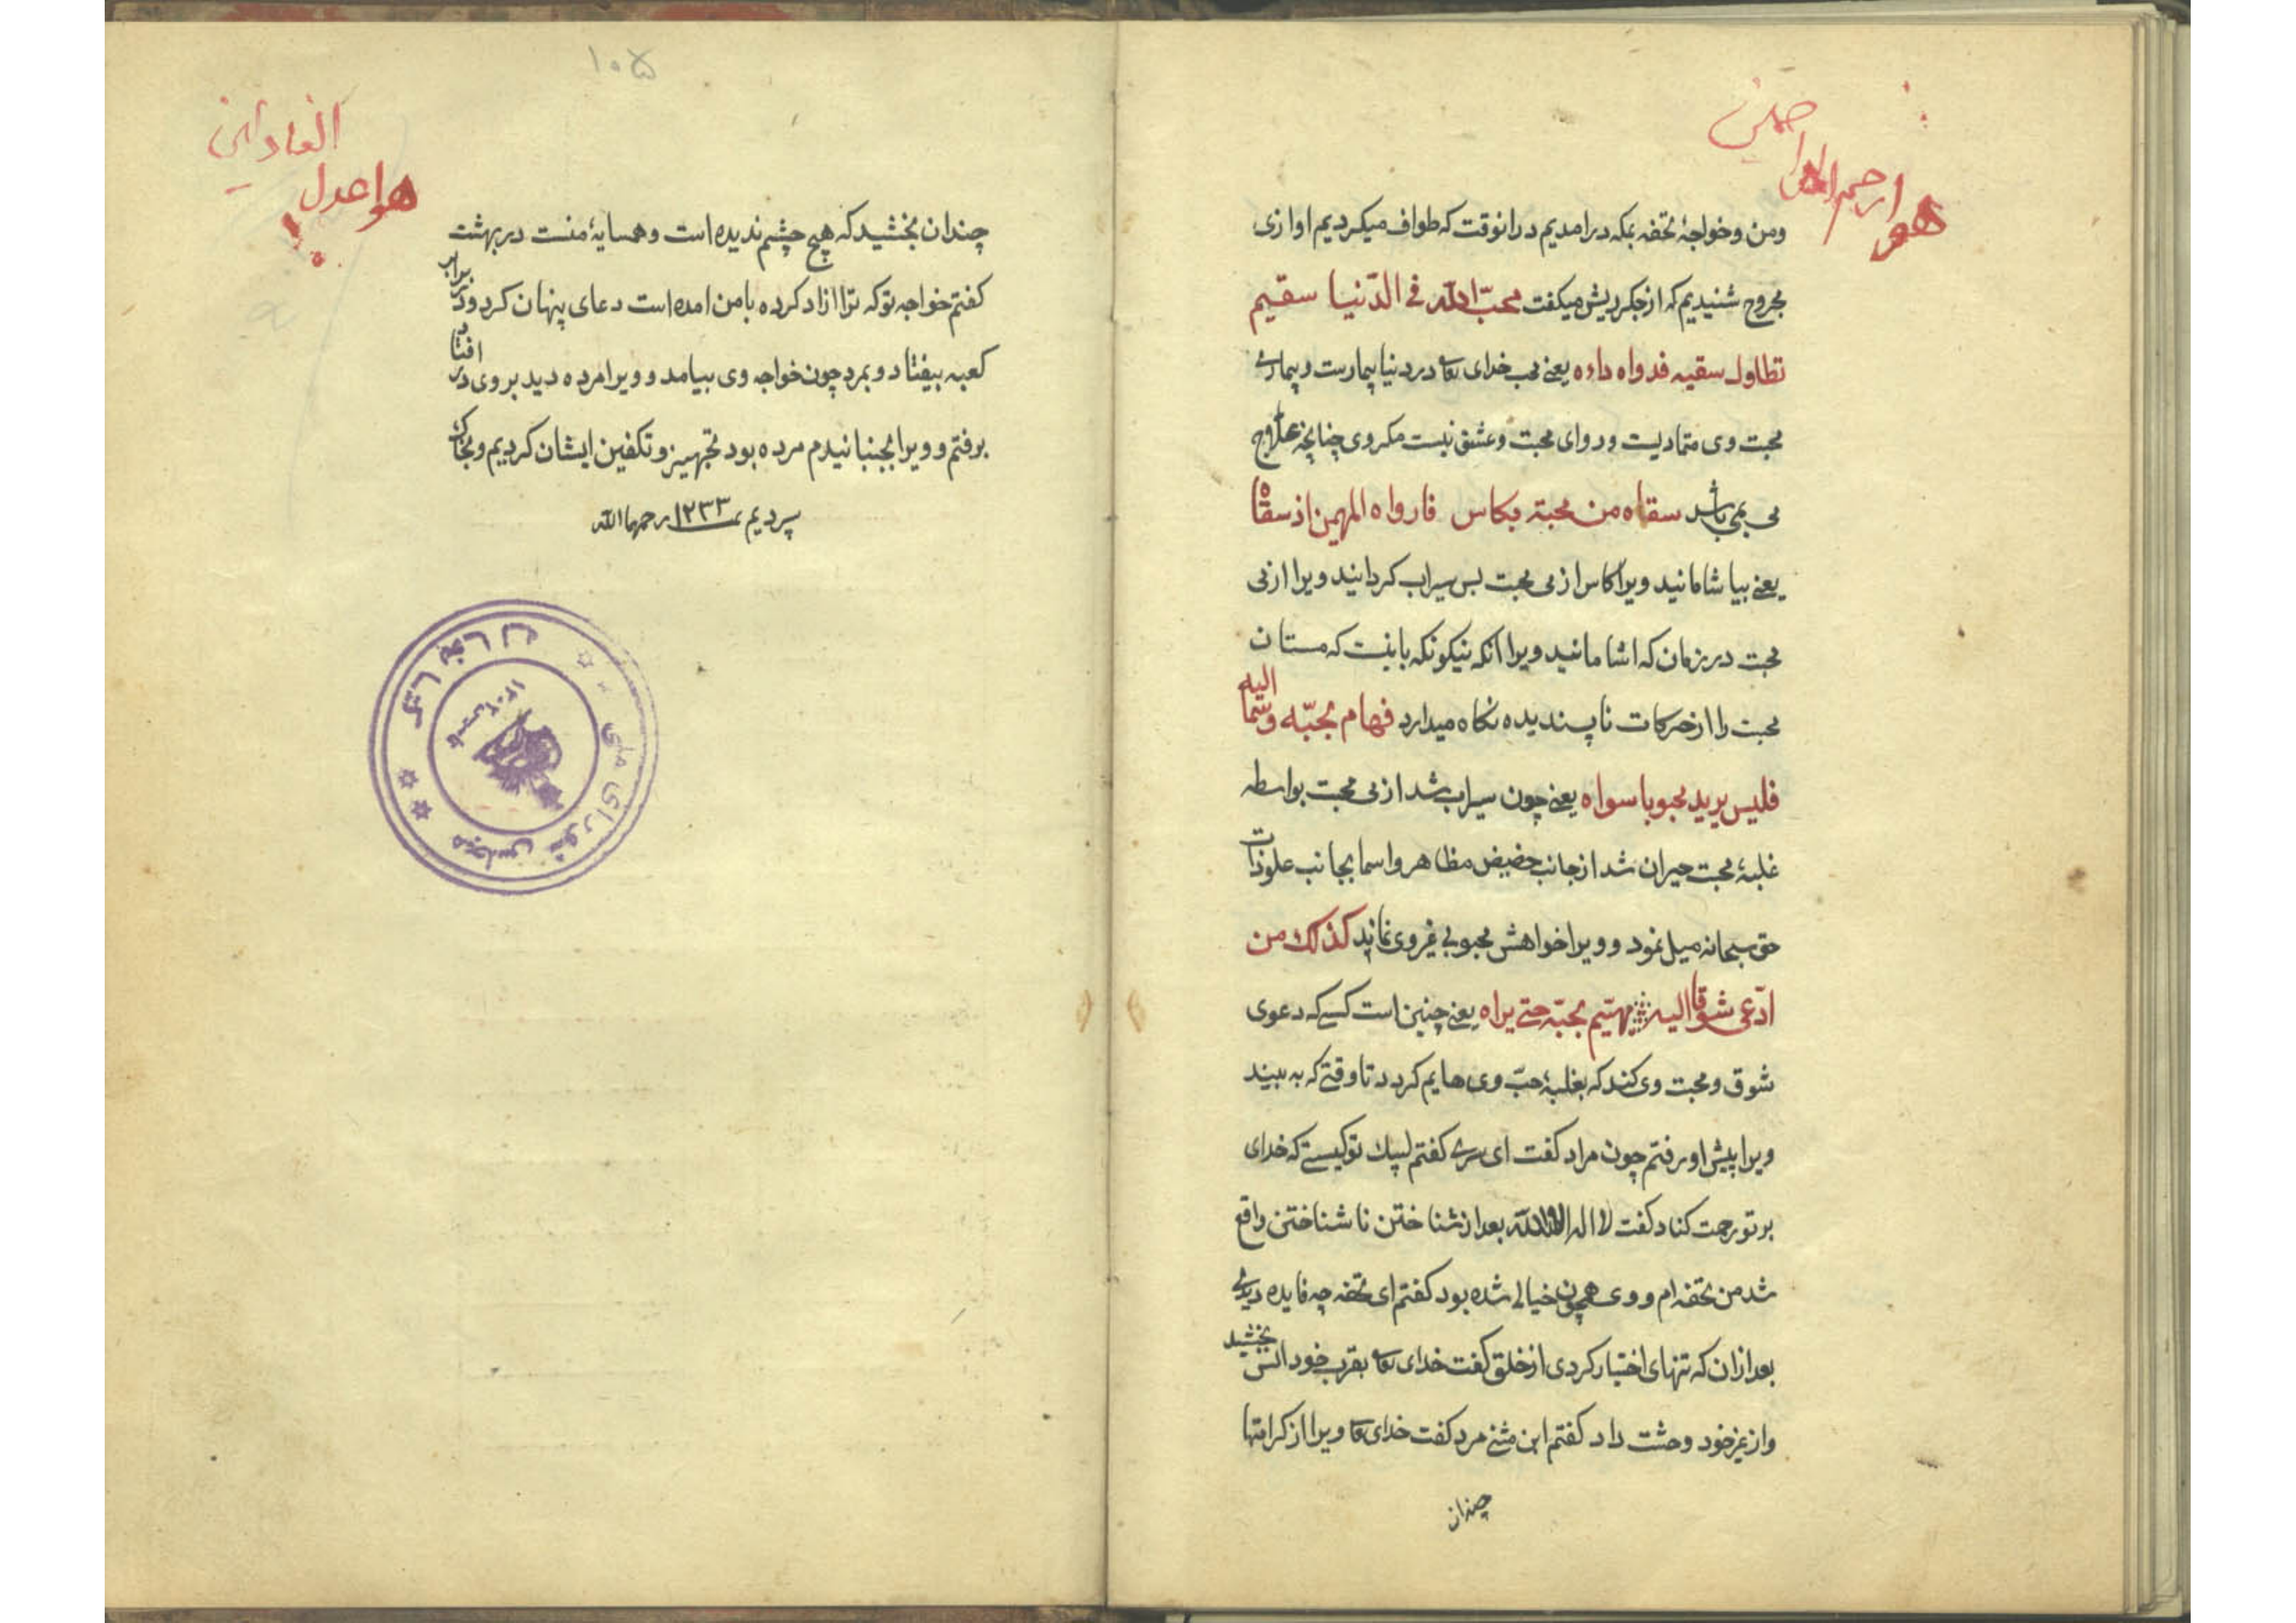 هو ارحم الراحمین
ومن وخواجهٔ تحفه بمکه درامدیم درانوقت که طواف میکردیم اوازی
مجروح شنیدیم که از جکر ریش میکفت محبّ الله فی الدّنیا سقیم
تطاول سقیه فدواه داءه یعنی محب خدای تعا در دنیا بیمارست وبیماری
محبت وی متمادیست ودوای محبت وعشق نیست مکر وی چنانچه علاج
می بمی باشد سقاه من محبته بکاس فارواه المهیمن اذ سقاه
یعنی بیاشامانید ویرا کاس از می محبت بس سیراب کردانید ویرا از می
محبت در زمان که اشامانید ویرا انکه نیکونکه بانیت که مستان
محبت را از حرکات ناپسندیده نکاه میدارد فهام بحبّه وسما الیه
فلیس یرید محبوبا سواه یعنی چون سیراب شد از می محبت بواسطه
غلبهٔ محبت حیران شد از جانب حضیض مظاهر واسما بجانب علو ذات
حق سبحانه میل نمود و ویرا خواهش محبوبی غیر وی نماند کذلک من
ادّعی شوقا الیه یهیم بحبّه حتی یراه یعنی چنین است کسی که دعوی
شوق ومحبت وی کند که بغلبهٔ حبّ وی هایم کردد تا وقتی که به بیند
ویرا پیش او رفتم چون مراد کفت ای سری کفتم لبیک تو کیستی که خدای
بر تو رحمت کناد کفت لا اله الا الله بعد از شناختن ناشناختن واقع
شد من تحفه ام و وی همچون خیالی شده بود کفتم ای تحفه چه فایده دیدی
بعد ازان که تنهای اختیار کردی از خلق کفت خدای تعا بقرب خود انس بخشید
واز غیر خود وحشت داد کفتم ابن مثنی مرد کفت خدای تعا ویرا از کرامتها
چندان
۱۰۵
هو اعدل العادلین
چندان بخشید که هیچ چشم ندیده است وهمسایهٔ منست در بهشت
کفتم خواجه تو که ترا ازاد کرده با من امده است دعای پنهان کرد ودر برابر
کعبه بیفتاد و بمرد چون خواجه وی بیامد و ویرا مرده دید بر وی در افتاد
برفتم و ویرا بجنبانیدم مرده بود تجهیز وتکفین ایشان کردیم وبخاک
سپردیم ۱۲۳۳ رحمهما الله
مجلس شورای ملی